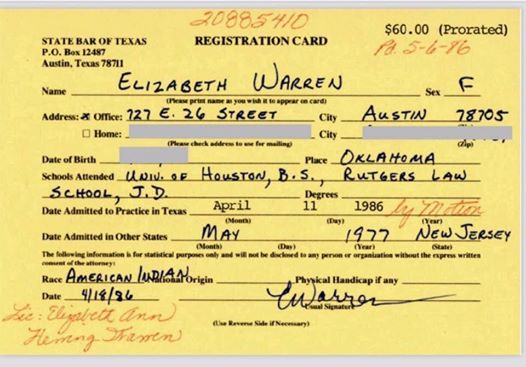 20885410
$60.00 (Prorated)
STATE BAR OF TEXAS
P.O. Box 12487
Austin, Texas 78711
REGISTRATION CARD
Pd. 5-6-86
Name ELIZABETH WARREN Sex F
(Please print name as you wish it to appear on card)
Address: Office: 727 E. 26 STREET City AUSTIN 78705
Home: City
(Please check address to use for mailing) (Zip)
Date of Birth Place OKLAHOMA
Schools Attended UNIV. OF HOUSTON, B.S., RUTGERS LAW
SCHOOL, J.D. Degrees
Date Admitted to Practice in Texas April 11 1986 by Motion
(Month) (Day) (Year)
Date Admitted in Other States MAY 1977 NEW JERSEY
(Month) (Day) (Year) (State)
The following information is for statistical purposes only and will not be disclosed to any person or organization without the express written
consent of the attorney:
Race AMERICAN INDIAN National Origin Physical Handicap if any
Date 4/18/86 EWarren
Usual Signature
Lic: Elizabeth Ann
(Use Reverse Side if Necessary)